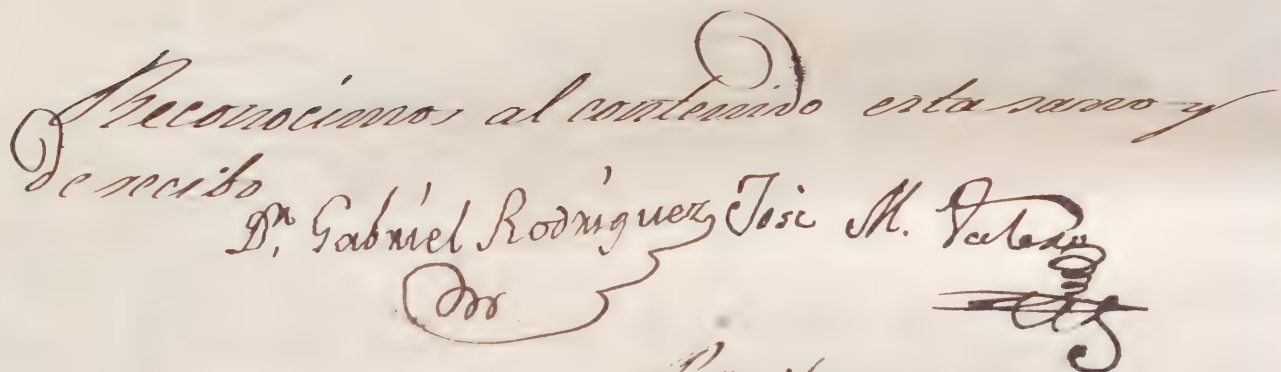 Reconocimos al contenido esta sano y
de recibo
Dn. Gabriel Rodriguez José M. Valero